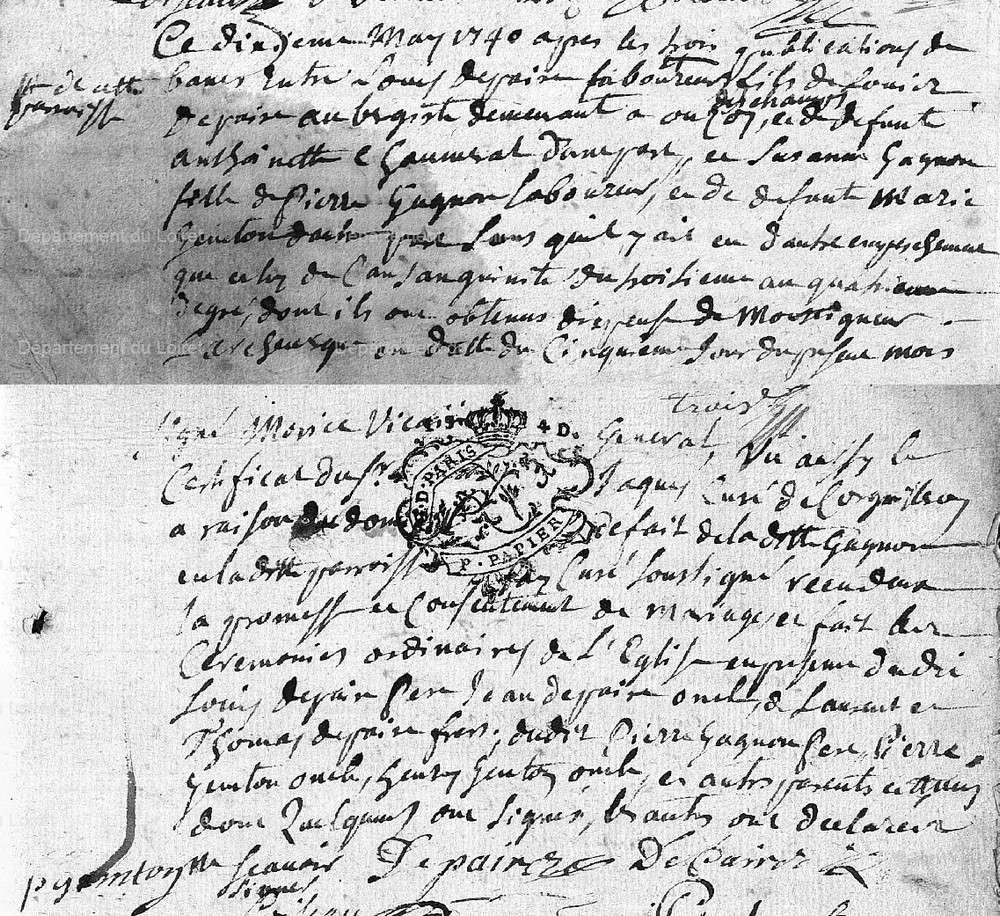 Ce dixieme May 1740 apres les trois publications de
bancs Entre Louis depaire laboureur fils de Louis
de cette
parroisse
Depaire aubergiste demeurant a
deschamps
et de defunte
anthoinette Chaumerat d'une part, et Susanne Gagnon
fille de Pierre Gagnon Laboureur, et de defunte Marie
Genton d'autre part Sans quil y ait eu d'autre empeschement
que celuy de Consanguinité du troisieme au quatrieme
degré, dont ils ont obtenus dispense de Monseigneur
L'archeveque en datte du Cinquieme Jour du present mois
Departement du Loire
Departement du Loire
troise
signé Morice Vicaire General, Vu aussy le
4 D.
G. D. PARIS
P. PAPIER
Certificat du Sr Jaques Curé de
a raison du domicile de fait de la ditte Gagnon
en la ditte parroisse Curé soussigné receu d'eux
la promesse et Consentement de mariage et fait les
Ceremonies ordinaires de L'Eglise en presence dudit
Louis depaire Pere Jean depaire oncle, de Laurent et
Thomas depaire freres, dudit Pierre Gagnon Pere, Pierre
Genton oncle, henry Genton oncle, et autres parents et amis
dont Quelqu'uns ont signes, les autres ont declarer
scavoir Depaire De Paire
signer